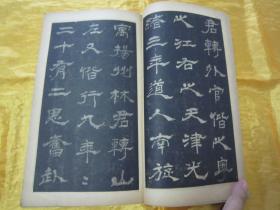 君轉外官偕之粵
之江右之天津光
緒三年道人南旋
寓揚州林君轉山
左又偕行九年〻
二十有二思奮赴